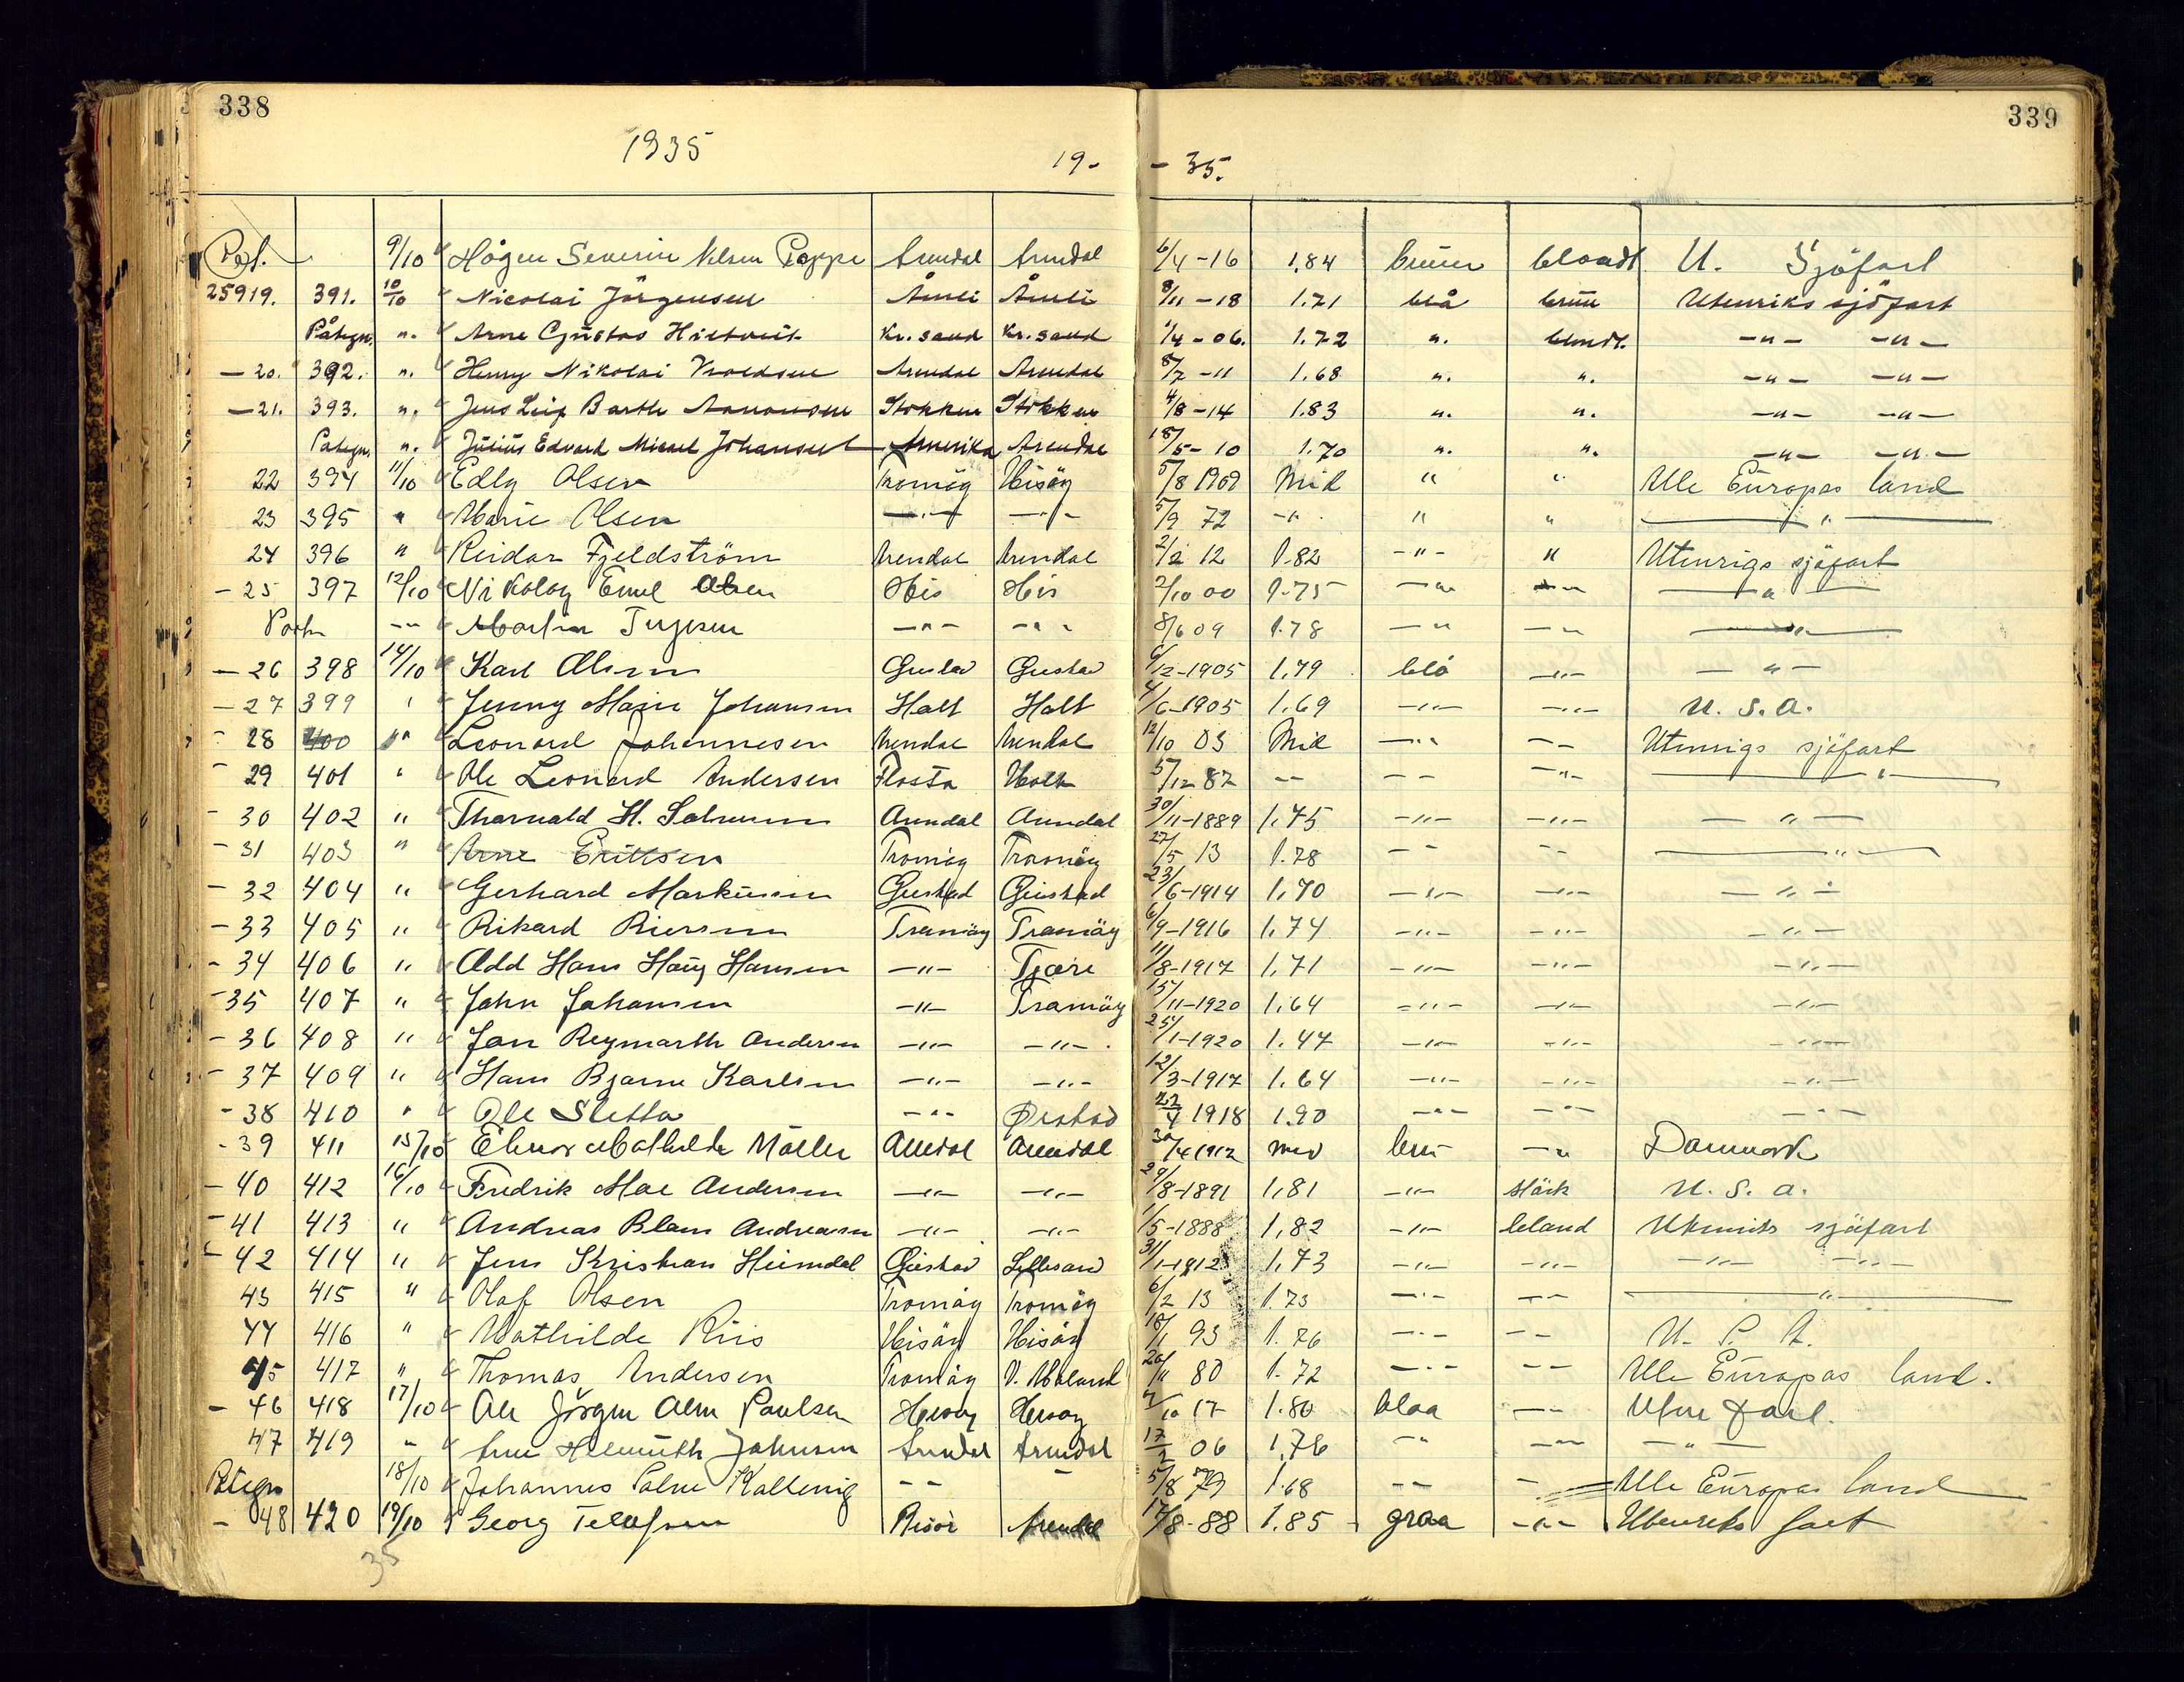 338
339
1935
19- - 35.
Pat. 9/10 Hågen Severin Nelsen Poppe Arendal Arendal 6/4-16 1.84 bruun blondt U. Sjöfart
25919. 391. 10/10 Nicolai Jörgensen Åmli Åmli 8/11-18 1.71 blå brun Utenriks sjöfart
Påtegn. ". Arne Gustav Kr.sand Kr.sand 1/4-06. 1.72 ". blondt. -"- -"-
-20. 392. ". Henry Nikolai Arendal Arendal 8/7-11 1.68 ". ". -"- -"-
-21. 393. ". Jens Leif Barth Aanonsen Stokken Stokken 4/8-14 1.83 ". ". -"- -"-
Påtegn. ". Julius Edvard Micael Johansen Amerika Arendal 18/5-10 1.70 ". ". -"- -"-
22 394 11/10 Edly Olsen Tromöy Hisöy 5/8 1909 Mid " " Alle Europas land
23 395 " Marie Olsen -"- -"- 5/9 72 -"- " " -"-
24 396 " Reidar Fjeldström Arendal Arendal 2/2 12 1.82 -"- " Utenrigs sjöfart
-25 397 12/10 Nikolay Emil Olsen His His 2/10 00 1.75 -"- -"- -"-
Patn -"- Martin Terjesen -"- -"- 8/6 09 1.78 -"- -"- -"-
-26 398 14/10 Karl Olsen Gustad 6/12-1905 1,79 blå -"- -"-
-27 399 " Jenny Marie Johansen Holt Holt 4/6-1905 1.69 -"- -"- U.S.A.
-28 400 " Leonard Johannesen Arendal Arendal 12/10 03 Mid -"- -"- Utenrigs sjöfart
-29 401 " Ole Leonard Andersen Flosta Holt 5/12 87 -- -- -"- -"-
-30 402 " Thorvald H. Arendal Arendal 30/11-1889 1,75 -"- -"- -"-
-31 403 " Arne Eriksen Tromöy Tromöy 27/5 13 1.78 -- -- -"-
-32 404 " Gerhard Markussen Gjerstad Gjerstad 23/6-1914 1,70 -"- -"- -"-
-33 405 " Rikard Tromöy Tromöy 6/9-1916 1,74 -"- -"- -"-
-34 406 " Odd Hans Haug Hansen -"- Tjöre 11/8-1917 1,71 -"- -"- -"-
-35 407 " John Johansen -"- Tromöy 15/11-1920 1,64 -"- -"- -"-
-36 408 " Jan Reymarth Andersen -"- -"- 25/1-1920 1.47 -"- -"- -"-
-37 409 " Hans Bjarne Karlsen -"- -"- 12/3-1917 1.64 -"- -"- -"-
-38 410 " Ole Sletta -"- Örstad 22/4 1918 1.90 -"- -"- -"-
-39 411 15/10 Mathilde Möller Arendal Arendal 30/4 1912 med brun -"- Danmark
-40 412 16/10 Fredrik Mac Andersen -"- -"- 29/8-1891 1,81 -"- mörk U.S.A.
-41 413 " Andreas Blom Andreasen -"- -"- 1/5-1888 1,82 -"- blond Utenriks sjöfart
-42 414 " Jens Kristian Heimdal Gjerstad Lillesand 31/1-1912 1,73 -"- -"- -"- -"-
43 415 " Olaf Olsen Tromöy Tromöy 6/2 13 1.73 -"- -"- -"-
44 416 " Mathilde Riis Hisöy Hisöy 18/1 93 1.76 -"- -- U.S.A.
45 417 " Thomas Andersen Tromöy V. Moland 20/11 80 1.72 -"- -- Alle Europas land.
-46 418 17/10 Ole Jörgen Olsen Paulsen Herøy Herøy 4/10 17 1.80 blaa -"- Utenr fart.
47 419 " Arne Helmuth Johnsen Arendal Arendal 17/2 06 1,76 -" -"- -"-
Påtegn 18/10 Johannes Palne Kallevig -- - 5/8 79 1.68 -- - Alle Europas land
-48 420 19/10 Georg Tellefsen Risör Arendal 17/8-88 1.85 graa -"- Utenriks fart
35